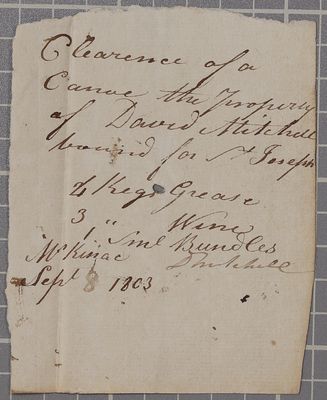 Clearence of a
Canoe the Property
of David Mitchell
bound for St Joseph
4 Kegs Grease
3 " Wine
1 Sml Bundles
McKinac DMitchell
Sept 8 1803